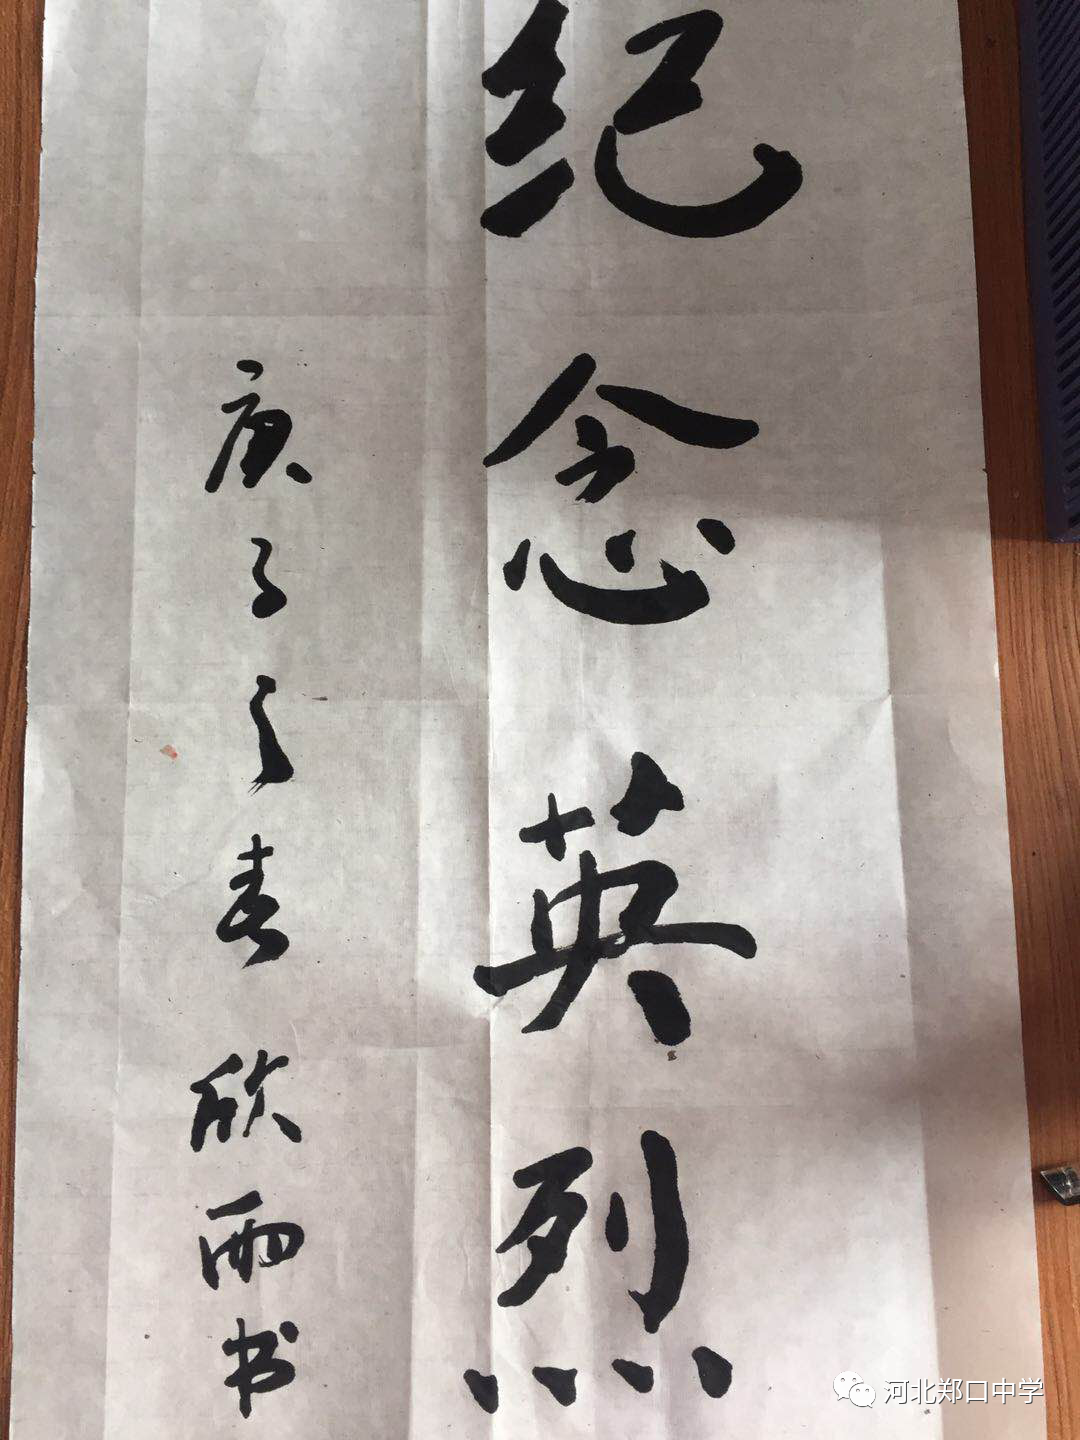 纪念英烈
庚子之春 欣雨书
河北郑口中学